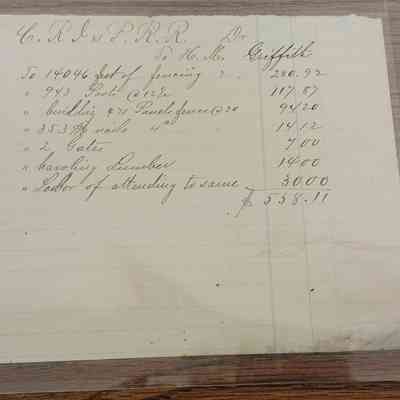 C. R. I & P. R. R. Dr
To H. M. Griffith
To 14046 feet of fencing 2 280.92
" 943 Posts @ 12½ 117.87
" building 471 Panels fence @ 20 94.20
" 353 lbs nails 4 14.12
" 2 Gates 7.00
" hauling Lumber 14.00
" Labor of attending to same 30.00
$ 558.11